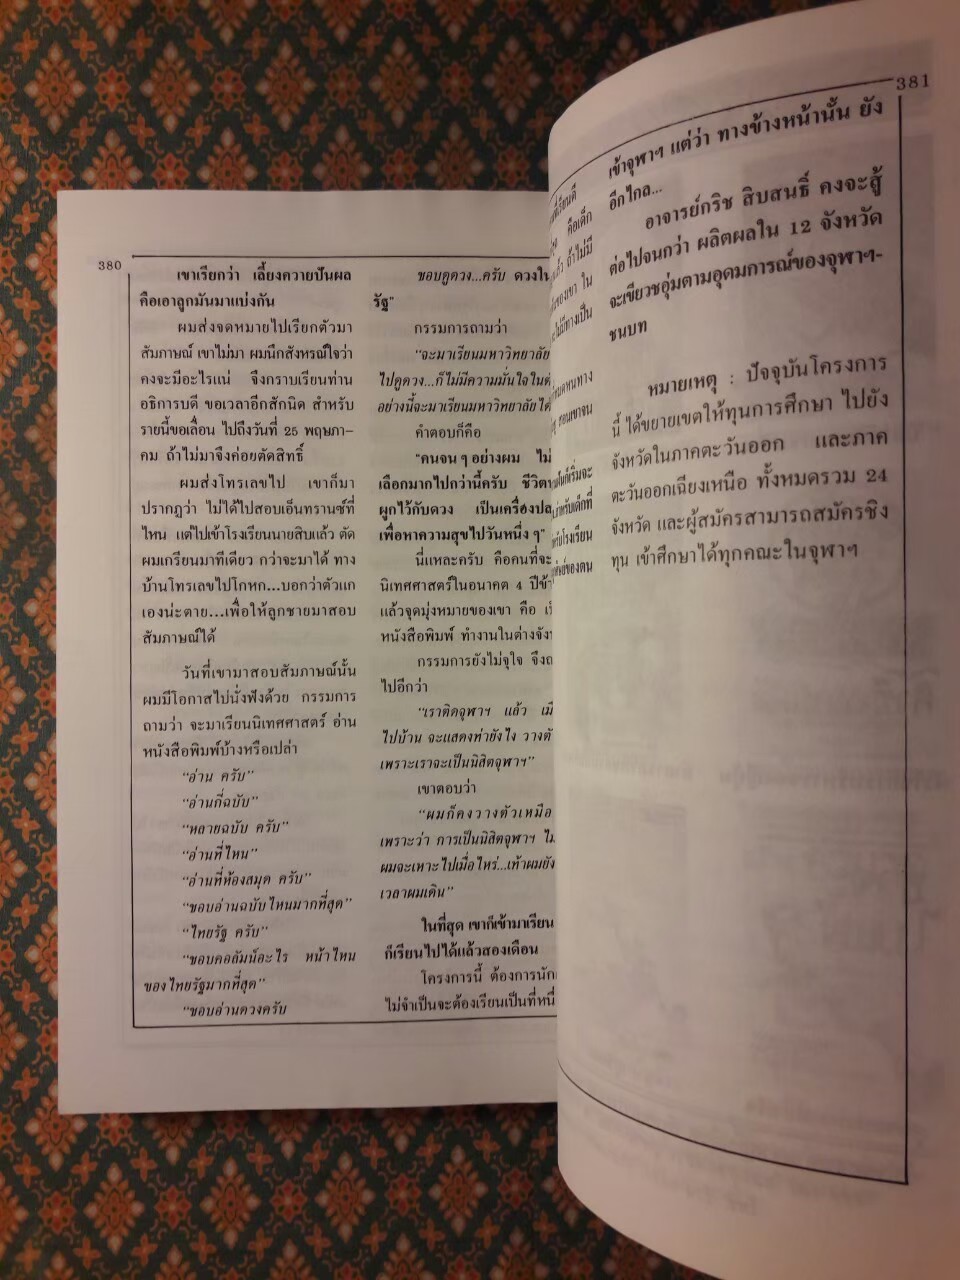 380
เขาเรียกว่า เลี้ยงควายปันผล
คือเอาลูกมันมาแบ่งกัน
ผมส่งจดหมายไปเรียกตัวมา
สัมภาษณ์ เขาไม่มา ผมนึกสังหรณ์ใจว่า
คงจะมีอะไรแน่ จึงกราบเรียนท่าน
อธิการบดี ขอเวลาอีกสักนิด สำหรับ
รายนี้ขอเลื่อน ไปถึงวันที่ 25 พฤษภา-
คม ถ้าไม่มาจึงค่อยตัดสิทธิ์
ผมส่งโทรเลขไป เขาก็มา
ปรากฏว่า ไม่ได้ไปสอบเอ็นทรานซ์ที่
ไหน แต่ไปเข้าโรงเรียนนายสิบแล้ว ตัด
ผมเกรียนมาทีเดียว กว่าจะมาได้ ทาง
บ้านโทรเลขไปโกหก...บอกว่าตัวแก
เองน่ะตาย...เพื่อให้ลูกชายมาสอบ
สัมภาษณ์ได้
วันที่เขามาสอบสัมภาษณ์นั้น
ผมมีโอกาสไปนั่งฟังด้วย กรรมการ
ถามว่า จะมาเรียนนิเทศศาสตร์ อ่าน
หนังสือพิมพ์บ้างหรือเปล่า
“อ่าน ครับ”
“อ่านกี่ฉบับ”
“หลายฉบับ ครับ”
“อ่านที่ไหน”
“อ่านที่ห้องสมุด ครับ”
“ชอบอ่านฉบับไหนมากที่สุด”
“ไทยรัฐ ครับ”
“ชอบคอลัมน์อะไร หน้าไหน
ของไทยรัฐมากที่สุด”
“ชอบอ่านดวงครับ
ชอบดูดวง...ครับ ดวงใน
รัฐ”
กรรมการถามว่า
“จะมาเรียนมหาวิทยาลัย
ไปดูดวง...ก็ไม่มีความมั่นใจใน
อย่างนี้จะมาเรียนมหาวิทยาลัย
คำตอบก็คือ
“คนจน ๆ อย่างผม ไม่
เลือกมากไปกว่านี้ครับ ชีวิต
ผูกไว้กับดวง เป็นเครื่อง
เพื่อหาความสุขไปวันหนึ่ง ๆ”
นี่แหละครับ คือคนที่จะ
นิเทศศาสตร์ในอนาคต 4 ปี
แล้วจุดมุ่งหมายของเขา คือ
หนังสือพิมพ์ ทำงานในต่าง
กรรมการยังไม่จุใจ จึง
ไปอีกว่า
“เราติดจุฬาฯ แล้ว
ไปบ้าน จะแสดงท่ายังไง วาง
เพราะเราจะเป็นนิสิตจุฬาฯ”
เขาตอบว่า
“ผมก็คงวางตัวเหมือ
เพราะว่า การเป็นนิสิตจุฬาฯ
ผมจะเหาะไปเมื่อไหร่...เท้าผมยัง
เวลาผมเดิน”
ในที่สุด เขาก็เข้ามาเรียน
ก็เรียนไปได้แล้วสองเดือน
โครงการนี้ ต้องการ
ไม่จำเป็นจะต้องเรียนเป็นที่หนึ่
381
เข้าจุฬาฯ แต่ว่า ทางข้างหน้านั้น ยัง
อีกไกล...
อาจารย์กริช สืบสนธิ์ คงจะสู้
ต่อไปจนกว่า ผลิตผลใน 12 จังหวัด
จะเขียวชอุ่มตามอุดมการณ์ของจุฬาฯ-
ชนบท
หมายเหตุ : ปัจจุบันโครงการ
นี้ ได้ขยายเขตให้ทุนการศึกษา ไปยัง
จังหวัดในภาคตะวันออก และภาค
ตะวันออกเฉียงเหนือ ทั้งหมดรวม 24
จังหวัด และผู้สมัครสามารถสมัครชิง
ทุน เข้าศึกษาได้ทุกคณะในจุฬาฯ